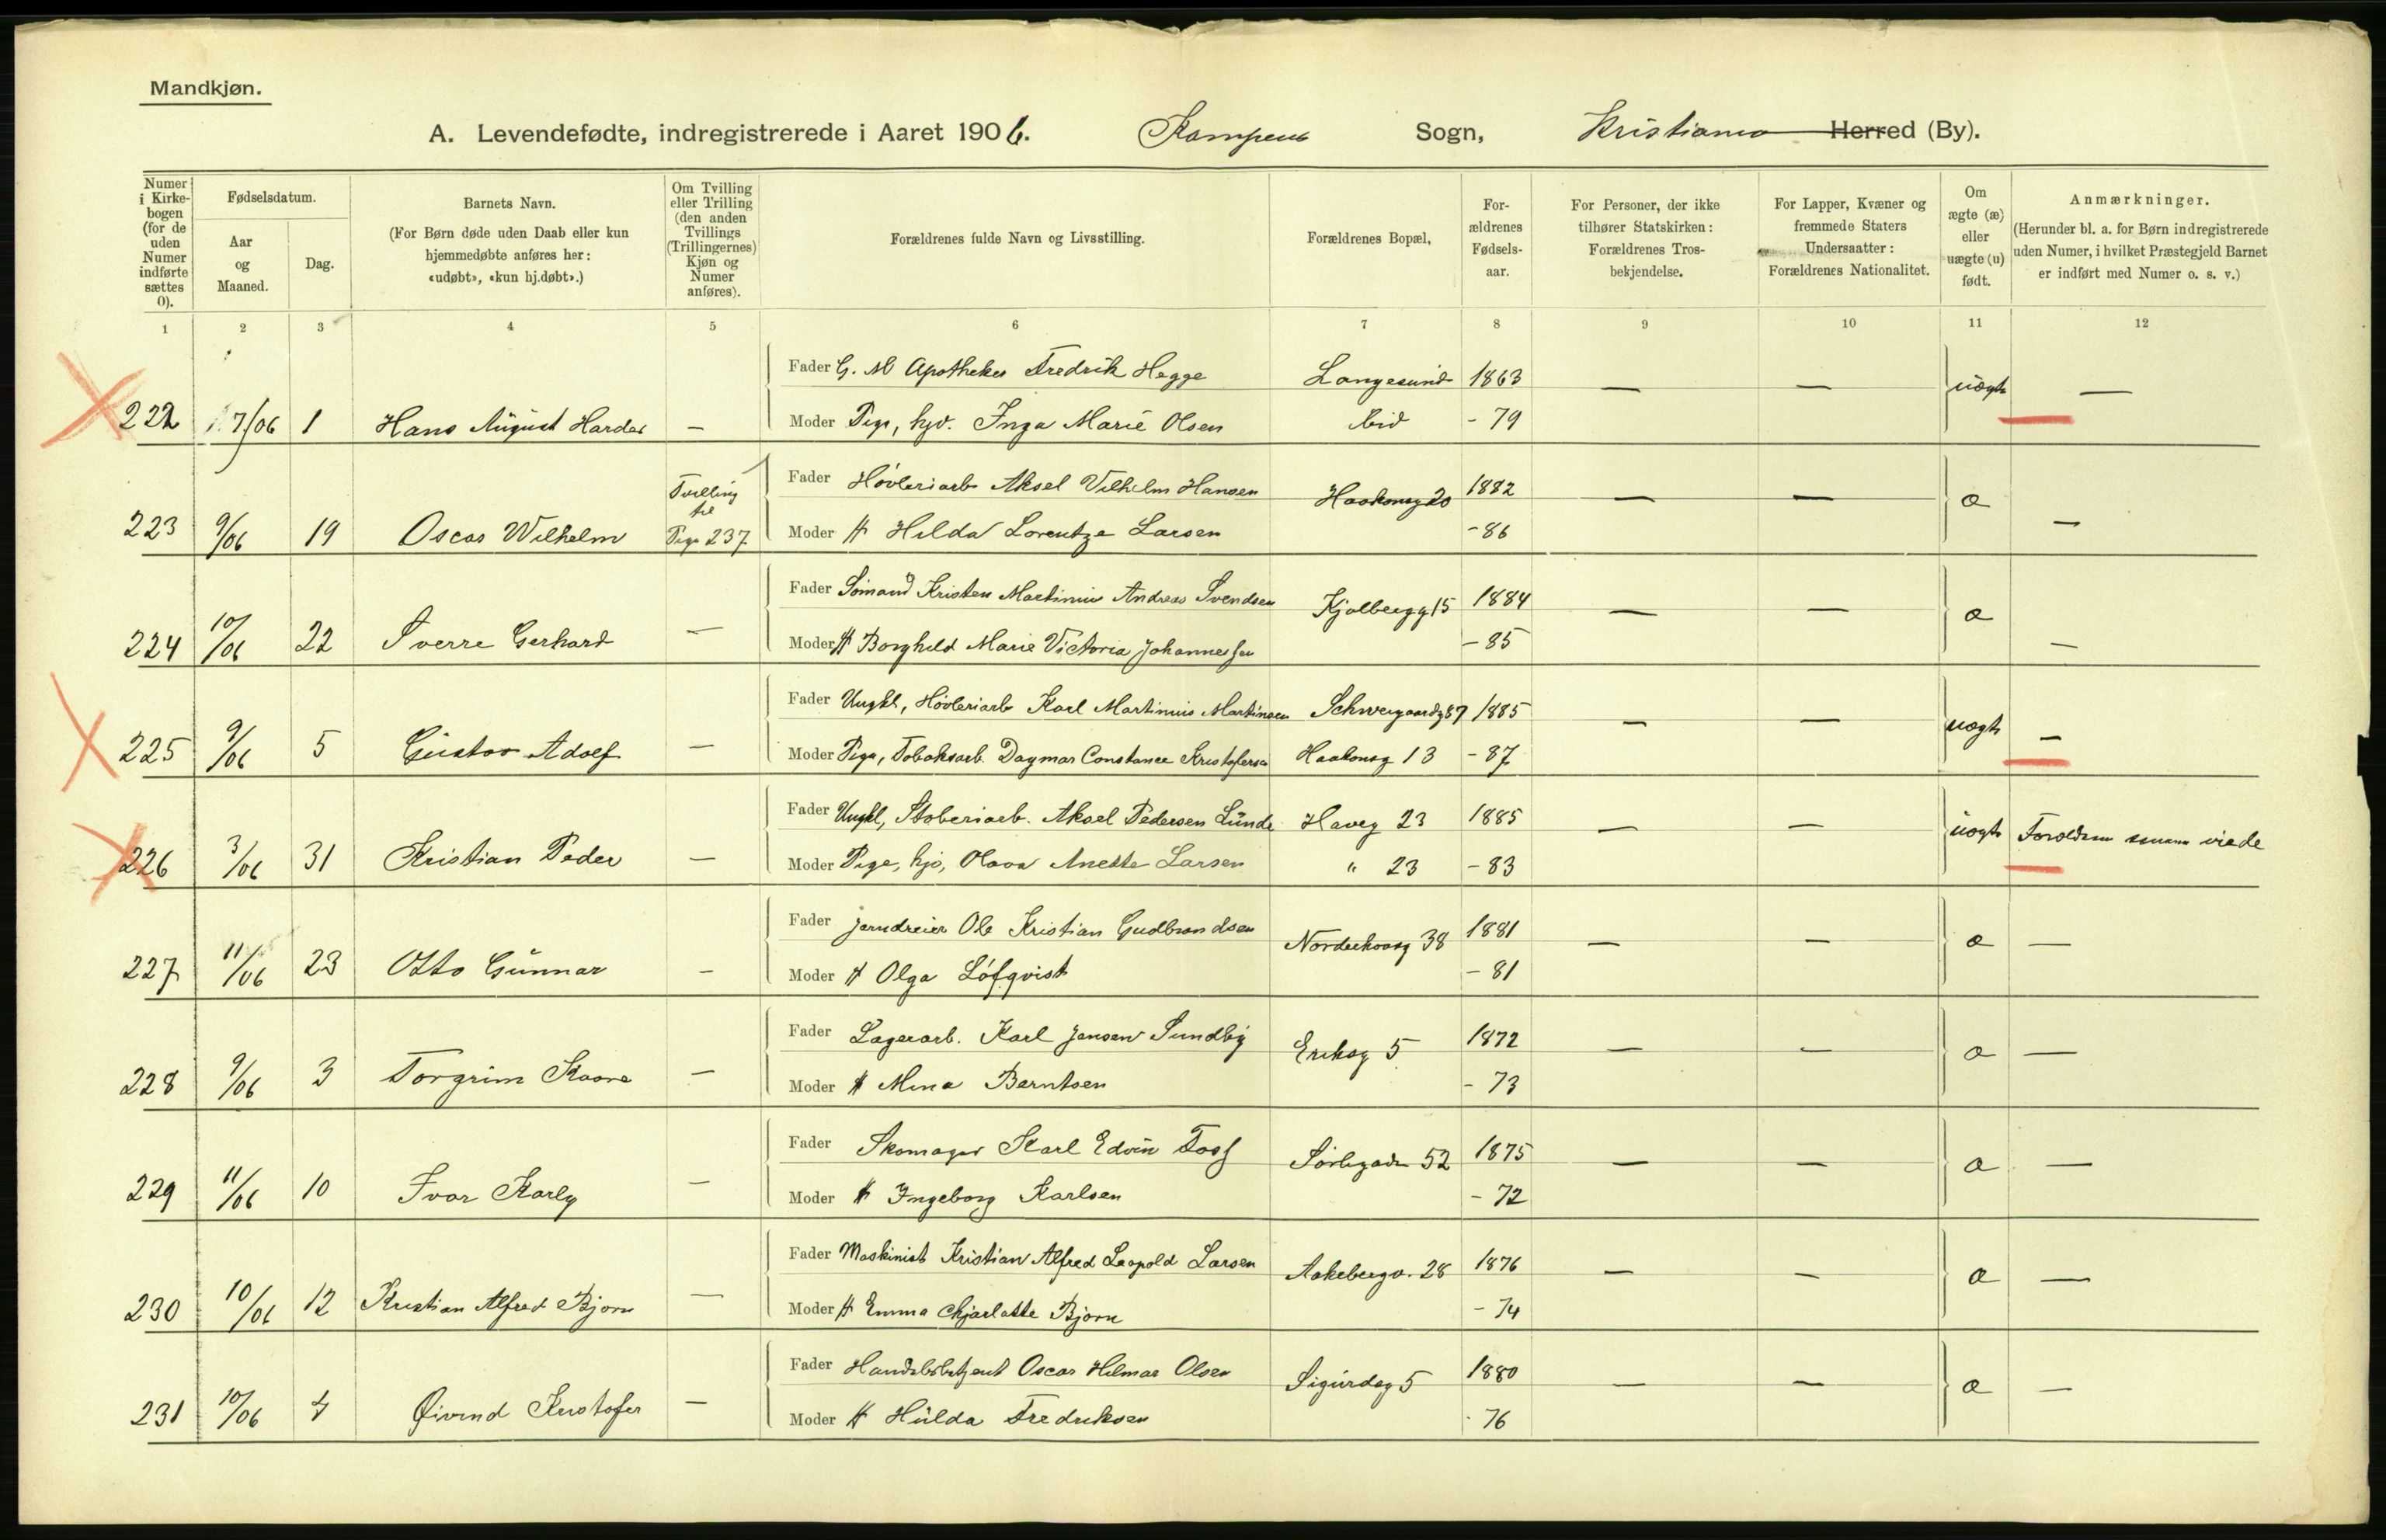 Mandkjøn.
A. Levendefødte, indregistrerede i Aaret 1906. Kampens Sogn, Kristiania Herred (By).
Numer i Kirkebogen (for de uden Numer indførte sættes 0).
Fødselsdatum.
Aar og Maaned.
Dag.
Barnets Navn.
(For Børn døde uden Daab eller kun hjemmedøbte anføres her: «udøbt», «kun hj.døbt».)
Om Tvilling eller Trilling (den anden Tvillings (Trillingernes) Kjøn og Numer anføres).
Forældrenes fulde Navn og Livsstilling.
Forældrenes Bopæl,
Forældrenes Fødselsaar.
For Personer, der ikke tilhører Statskirken: Forældrenes Trosbekjendelse.
For Lapper, Kvæner og fremmede Staters Undersaatter: Forældrenes Nationalitet.
Om ægte (æ) eller uægte (u) født.
Anmærkninger.
(Herunder bl. a. for Børn indregistrerede uden Numer, i hvilket Præstegjeld Barnet er indført med Numer o. s. v.)
1 2 3 4 5 6 7 8 9 10 11 12
Fader G. M Apotheker Fredrik Hegge Langesund 1863 — — uægte —
222 7/06 1 Hans August Harder — Moder Pige, hjv. Inga Marie Olsen ibid - 79
Fader Høvleriarb Aksel Vilhelm Hansen Haakonsg 20 1882 — — æ —
223 9/06 19 Oscar Wilhelm Tvilling til Pige 237 Moder H Hilda Lorentze Larsen - 86
Fader Sømand Kristen Martinius Andreas Svendsen Kjølbergg 15 1884 — — æ —
224 10/06 22 Sverre Gerhard — Moder H Borghild Marie Victoria Johannessen - 85
Fader Ungkl, Høvleriarb Karl Martinius Martinsen Schweigaardsg 87 1885 — — uægte —
225 9/06 5 Gustav Adolf — Moder Pige, Tobaksarb. Dagmar Constance Kristofersen Haakonsg 13 - 87
Fader Ungkl, Støberiarb. Aksel Pedersen Lunde Haveg 23 1885 — — uægte Forældrene senere viede
226 3/06 31 Kristian Peder — Moder Pige, hjv, Olava Anette Larsen " 23 - 83
Fader Jerndreier Ole Kristian Gudbrandsen Norderhovsg 38 1881 — — æ —
227 11/06 23 Otto Gunnar — Moder H Olga Löfqvist - 81
Fader Lagerarb. Karl Jensen Sundby Eriksg 5 1872 — — æ —
228 9/06 3 Torgrim Kaare — Moder H Mina Berntsen - 73
Fader Skomager Karl Edvin Toof Sørligade 52 1875 — — æ —
229 11/06 10 Ivar Karly — Moder H Ingeborg Karlsen - 72
Fader Maskinist Kristian Alfred Leopold Larsen Aakebergv. 28 1876 — — æ —
230 10/06 12 Kristian Alfred Bjorn — Moder H Emma Chjarlatte Bjorn - 74
Fader Handelsbetjent Oscar Hilmar Olsen Sigurdsg 5 1880 — — æ —
231 10/06 4 Øivind Kristofer — Moder H Hulda Fredriksen - 76